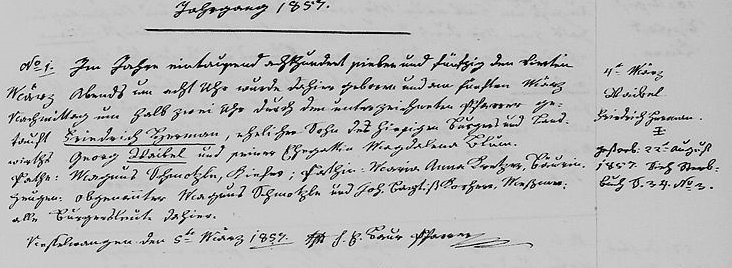 Jahrgang 1857.
No 1. Im Jahre eintausend achthundert sieben und fünfzig den vierten
März Abends um acht Uhr wurde dahier geboren und am fünften März
Nachmittag um halb zwei Uhr durch den unterzeichneten Pfarrer ge-
tauft Friedrich Herman, ehelicher Sohn des hiesigen Bürgers und Land-
wirths Georg Waibel und seiner Ehegattin Magdalena Blum.
Pathe: Magnus Schmotzle, Kiefer; Pathin: Maria Anna Bäurin.
Zeugen: obgenannter Magnus Schmotzle und Joh. Meßmer,
alle Bürgersleute dahier.
Nesselwangen den 5ten März 1857. Baur Pfarrer
4te März
Waibel
Friedrich Herman.
gestorb. 22ten August
1857. Sieh Sterb-
buch S. 34. No 2.